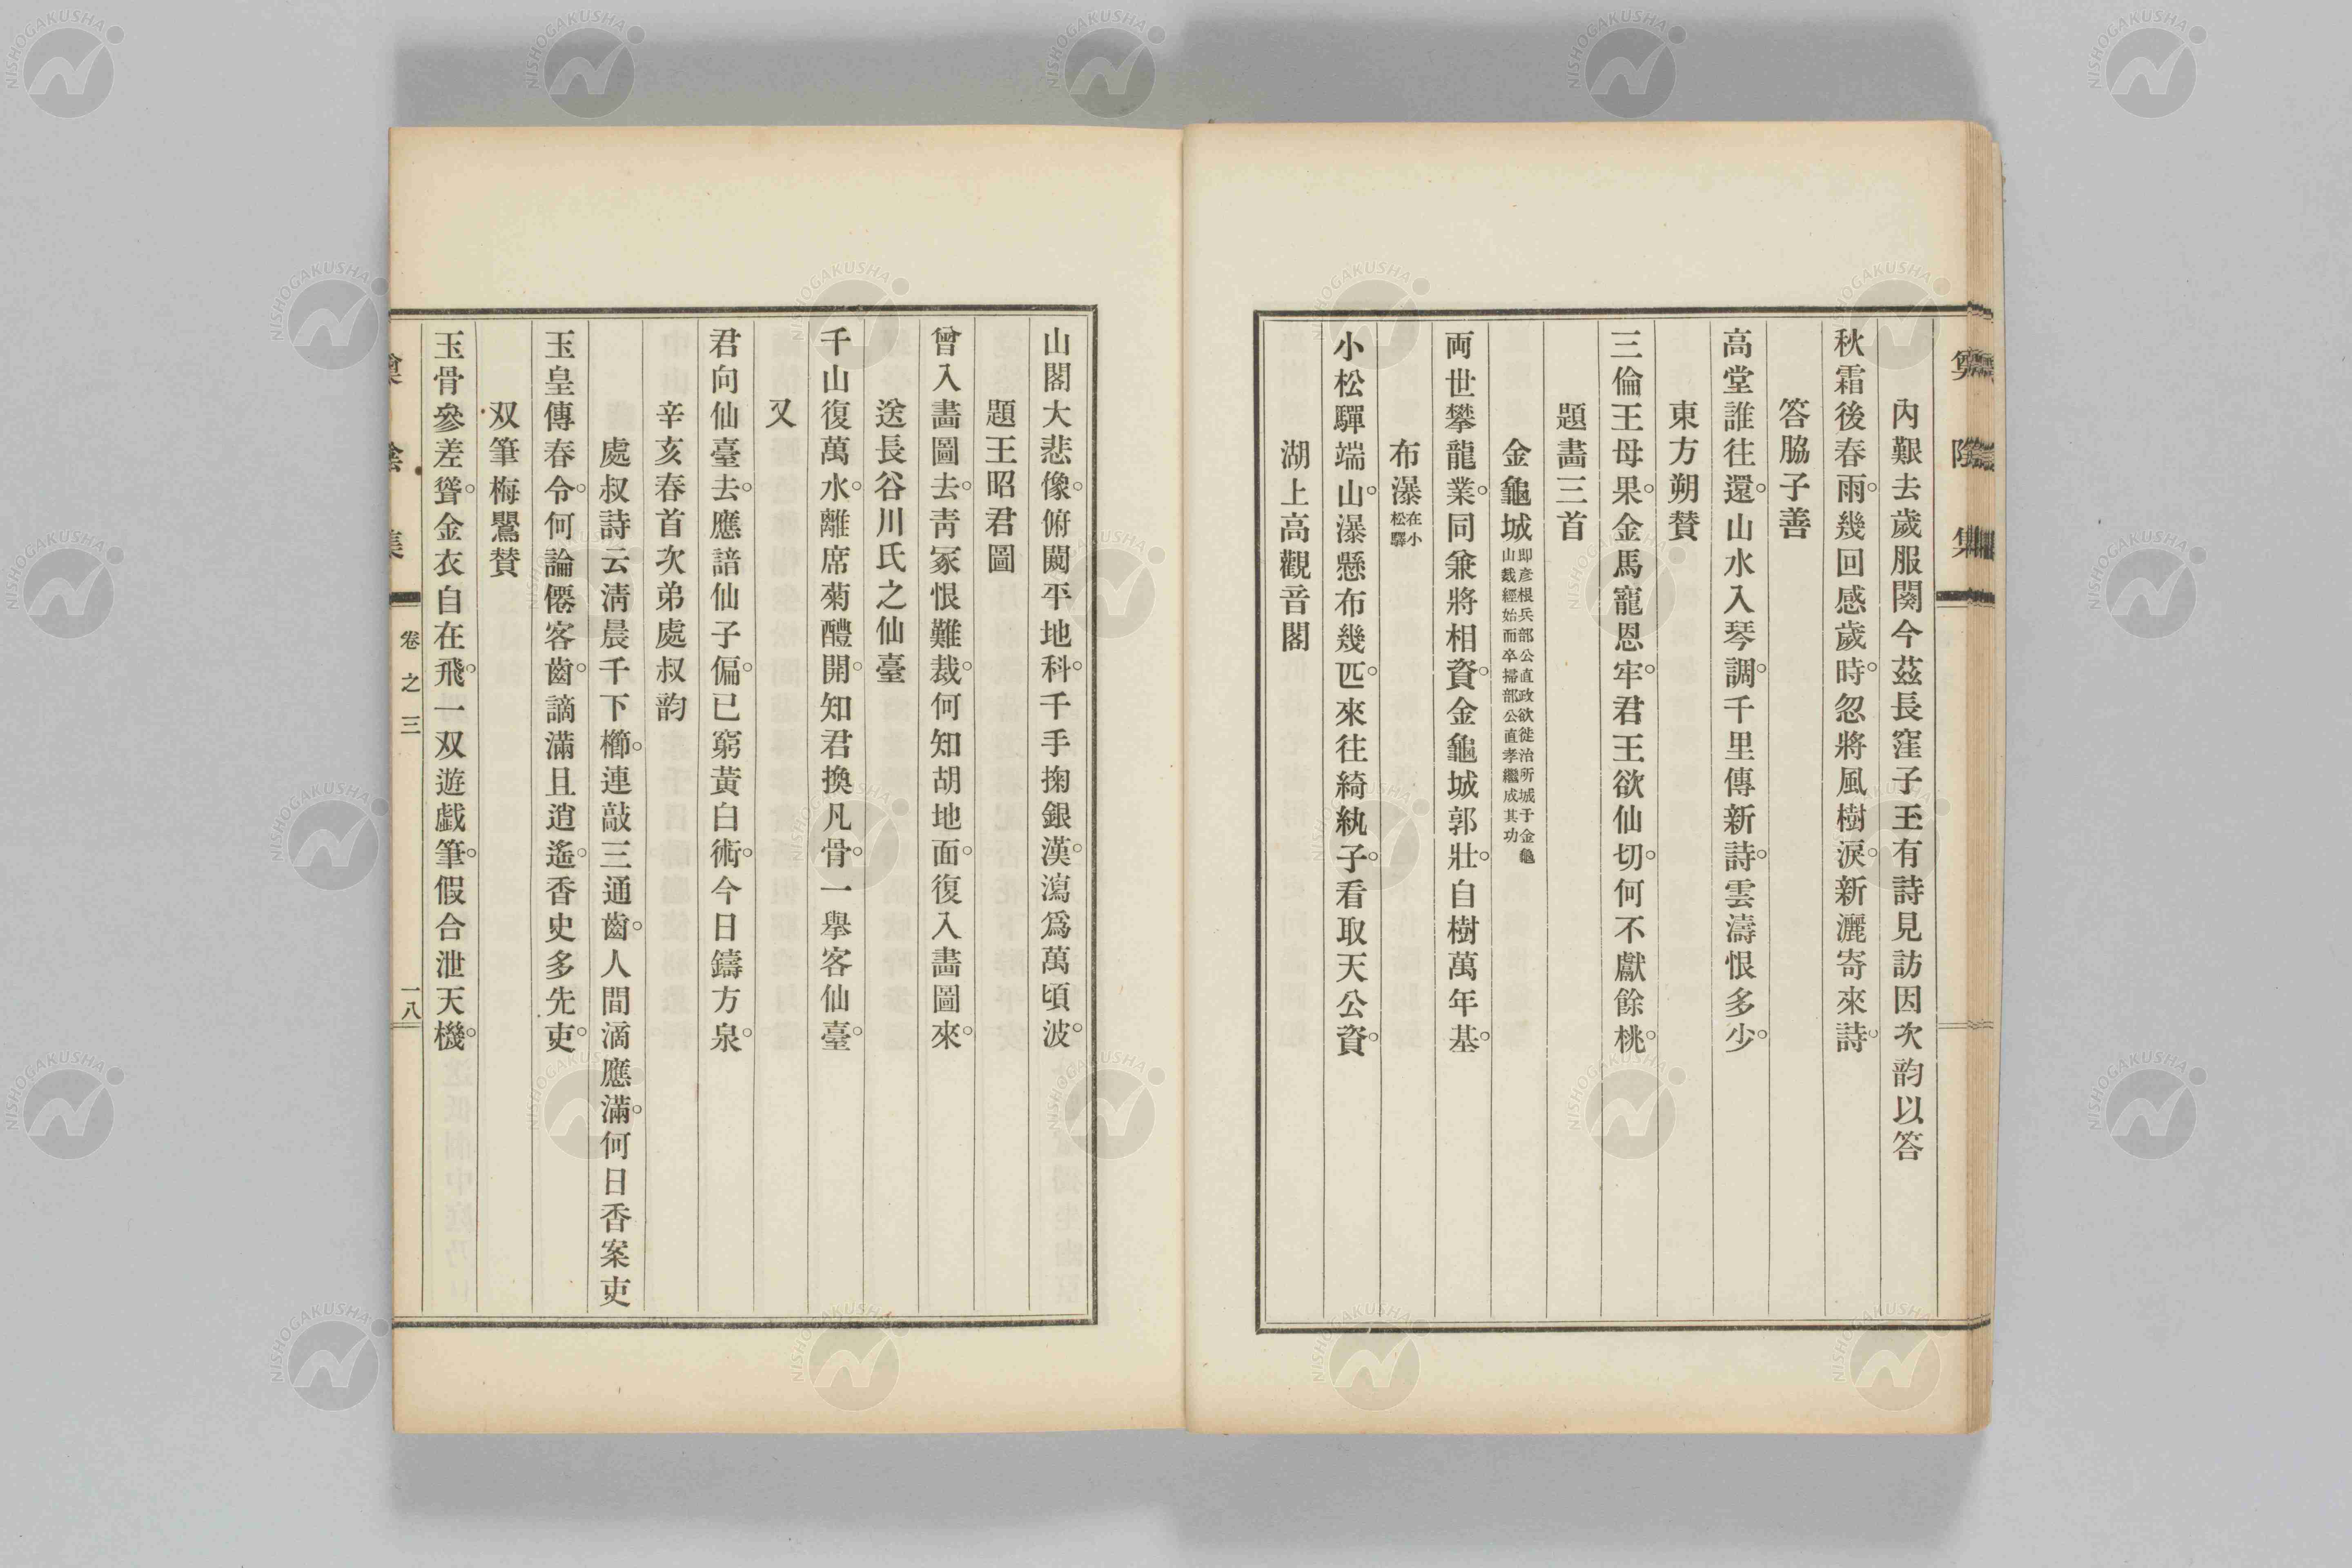 內艱去歲服闋今茲長窪子玉有詩見訪因次韵以答
秋霜後春雨。幾回感歲時。忽將風樹淚。新灑寄來詩。
答脇子善
高堂誰往還。山水入琴調。千里傳新詩。雲濤恨多少。
東方朔賛
三倫王母果。金馬寵恩牢。君王欲仙切。何不獻餘桃。
題畵三首
金龜城 即彥根兵部公直政欲徙治所城于金龜山戴經始而卒掃部公直孝繼成其功
両世攀龍業。同兼將相資。金龜城郭壯。自樹萬年基。
布瀑 在小松驛
小松驛端山。瀑懸布幾匹。來往綺紈子。看取天公資。
湖上高觀音閣
山閣大悲像。俯闞平地科。千手掬銀漢。瀉爲萬頃波。
題王昭君圖
曾入畵圖去。靑冢恨難裁。何知胡地面。復入畵圖來。
送長谷川氏之仙臺
千山復萬水。離席菊醴開。知君換凡骨。一擧客仙臺。
又
君向仙臺去。應諳仙子偏。已窮黃白術。今日鑄方泉。
辛亥春首次弟處叔韵
處叔詩云淸晨千下櫛。連敲三通齒。人間滴應滿。何日香案吏
玉皇傳春令。何論僊客齒。謫滿且逍遙。香史多先吏。
双筆梅鸎賛
玉骨參差聳。金衣自在飛。一双遊戯筆。假合泄天機。
卷之三
一八
NISHOGAKUSHA